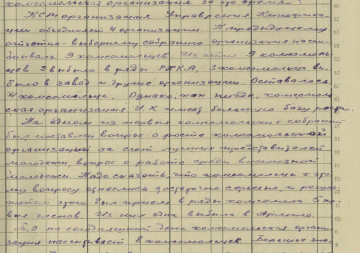 комсомольская организация за это время?
КСМ организация Управления Кинофика-
ции объединяет 4 организации. К предыдущему
отчетно-выборному собранию организация насчи-
тывала 9 комсомольцев. Из этих 9 комсомоль-
цев 2 выбыло в ряды РККА, 3 комсомольца вы-
было в завод и другие организации. Оставалось
4 комсомольца. Однако, как нигде, комсомоль-
ская организация У.К. имеет большую базу роста.
На одном из первых комсомольских собраний
был поставлен вопрос о росте комсомольской
организации за счет лучших представителей
молодежи, вопрос о работе среди внесоюзной
молодежи. Надо сказать, что комсомольцы к это-
му вопросу отнеслись достаточно серьезно, и резуль-
татом этого был прием в ряды комсомола 5 но-
вых членов. Из них один выбыл в Армию.
на сегодняшний день комсомольская органи-
зация насчитывает 8 комсомольцев.